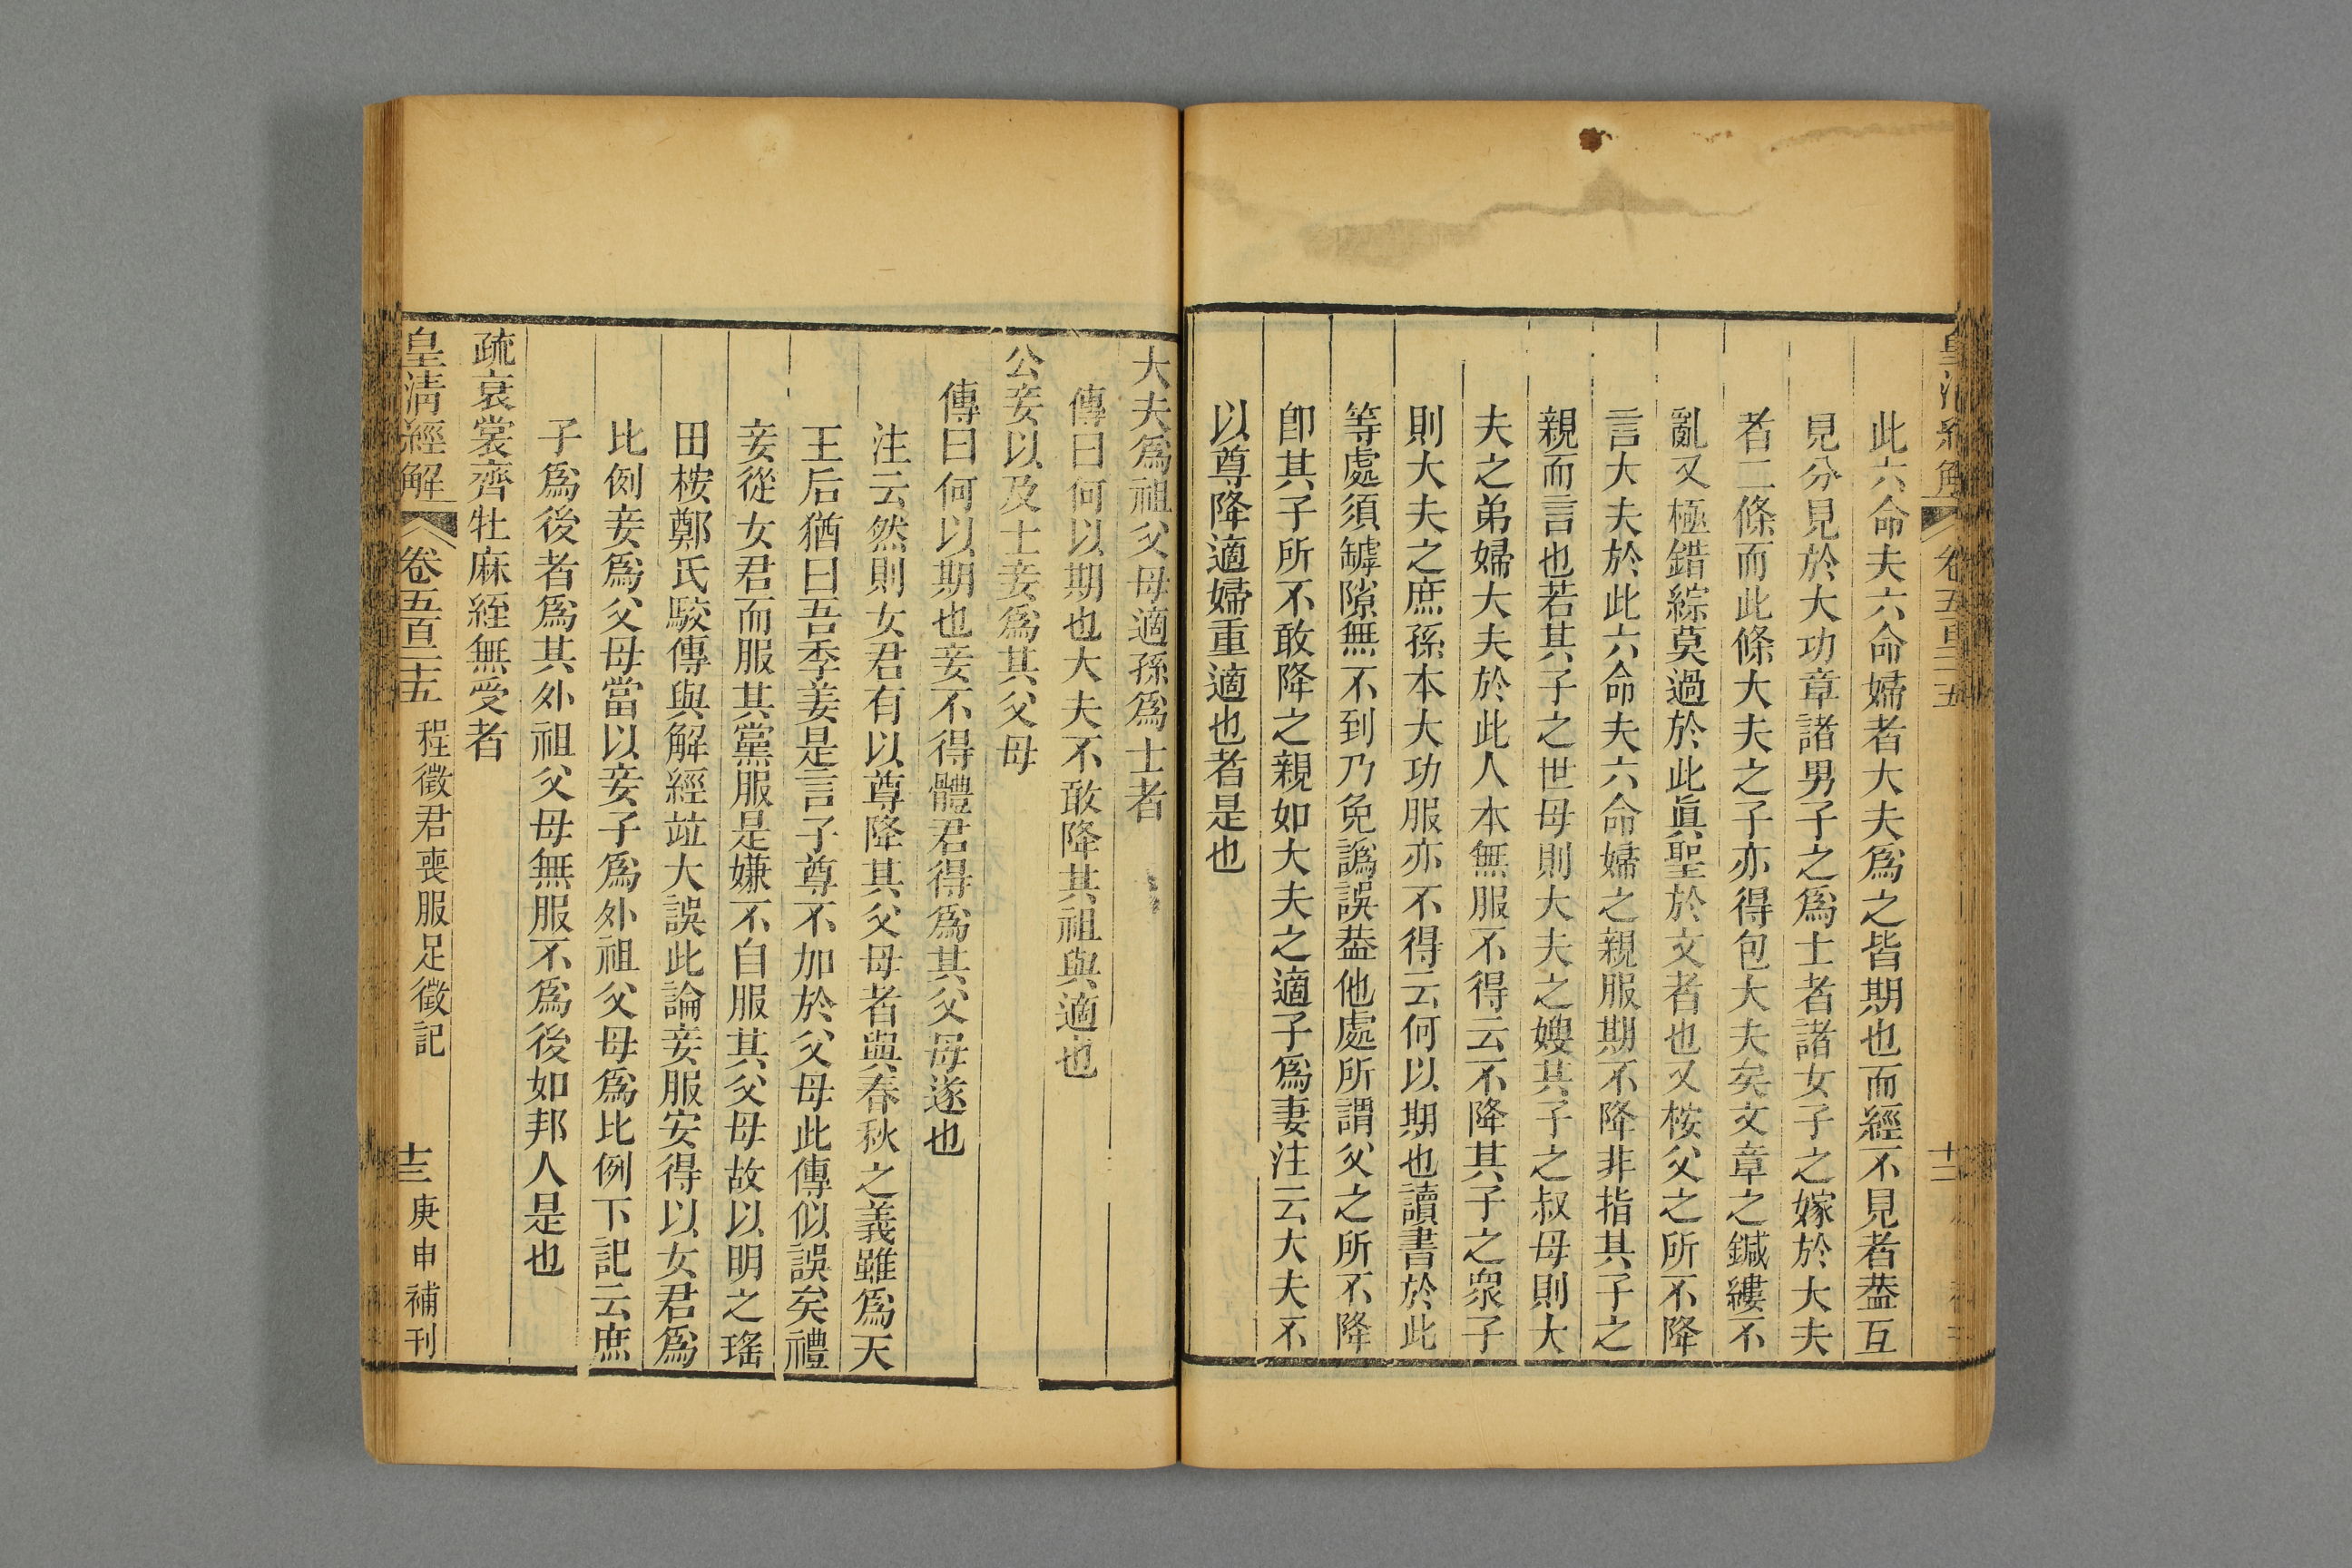 此六命夫六命婦者大夫爲之皆期也而經不見者葢互
見分見於大功章諸男子之爲士者諸女子之嫁於大夫
者二條而此條大夫之子亦得包大夫矣文章之鍼縷不
亂又極錯綜莫過於此眞聖於文者也又桉父之所不降
言大夫於此六命夫六命婦之親服期不降非指其子之
親而言也若其子之世母則大夫之嫂其子之叔母則大
夫之弟婦大夫於此人本無服不得云不降其子之衆子
則大夫之庶孫本大功服亦不得云何以期也讀書於此
等處須罅隙無不到乃免譌誤葢他處所謂父之所不降
卽其子所不敢降之親如大夫之適子爲妻注云大夫不
以尊降適婦重適也者是也
大夫爲祖父母適孫爲士者
傳曰何以期也大夫不敢降其祖與適也
公妾以及士妾爲其父母
傳曰何以期也妾不得體君得爲其父母遂也
注云然則女君有以尊降其父母者與春秋之義雖爲天
王后猶曰吾季姜是言子尊不加於父母此傳似誤矣禮
妾從女君而服其黨服是嫌不自服其父母故以明之瑤
田桉鄭氏駮傳與解經竝大誤此論妾服安得以女君爲
比例妾爲父母當以妾子爲外祖父母爲比例下記云庶
子爲後者爲其外祖父母無服不爲後如邦人是也
疏衰裳齊牡麻絰無受者
皇淸經解 卷五百二十五 程徵君喪服足徵記 十三 庚申補刊